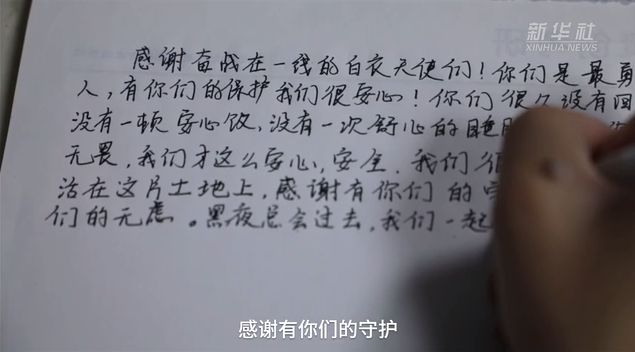 新华社
XINHUA.NEWS
感谢奋战在一线的白衣天使们！你们是最勇
人，有你们的保护我们很安心！你们很久没有回
没有一顿安心饭，没有一次舒心的睡
无畏，我们才这么安心，安全，我们很
活在这片土地上，感谢有你们的守
们的无虑。黑夜总会过去，我们一起
感谢有你们的守护